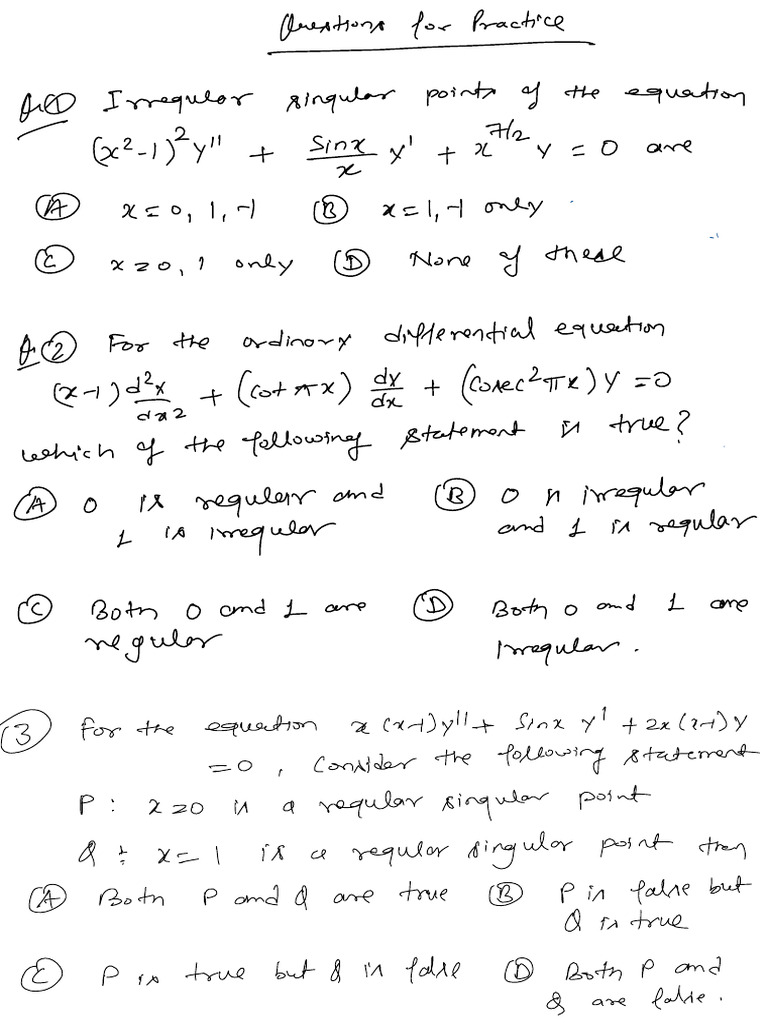 Questions for Practice
Q.① Irregular singular points of the equation
(x²-1)²y'' + Sinx/x y' + x^7/2 y = 0 are
Ⓐ x=0, 1, -1 Ⓑ x=1,-1 only
Ⓒ x=0, 1 only Ⓓ None of these
Q.② For the ordinary differential equation
(x-1) d²y/dx² + (cot πx) dy/dx + (cosec²πx)y =0
which of the following statement is true?
Ⓐ 0 is regular and Ⓑ 0 is irregular
1 is irregular and 1 is regular
Ⓒ Both 0 and 1 are Ⓓ Both 0 and 1 are
regular Irregular.
③ For the equation x(x-1)y''+ Sinx y' +2x(x-1)y
=0, Consider the following statement
P: x=0 is a regular singular point
Q: x=1 is a regular singular point then
Ⓐ Both P and Q are true Ⓑ P is false but
Q is true
Ⓒ P is true but Q is false Ⓓ Both P and
Q are false.